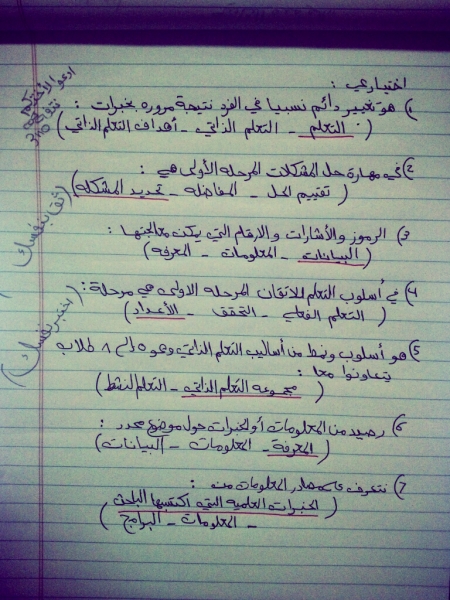 اختياري :
١) هو تغيير دائم نسبيا في الفرد نتيجة مروره بخبرات :
( التعلم - التعلم الذاتي - أهداف التعلم الذاتي )
٢) في مهارة حل المشكلات المرحله الأولى هي :
( تقييم الحل - المفاضله - تحديد المشكله )
٣) الرموز والأشارات و الارقام التي يمكن معالجتها :
( البيانات - المعلومات - المعرفه )
٤) في أسلوب التعلم للاتقان المرحله الاولى هي مرحلة :
( التعلم الفعلي - التحقق - الأعداد )
٥) هو أسلوب ونمط من أساليب التعلم الذاتي وهو ٥ الى ٨ طلاب
يتعاونوا معا :
( مجموعه التعلم الذاتي - التعلم النشط )
٦) رصيد من المعلومات أو الخبرات حول موضوع محدد :
( المعرفة - المعلومات - البيانات )
٧) نتعرف على مصادر المعلومات من :
( الخبرات العلميه التي اكتسبها الباحث
- المعلومات - البرامج )
ادعو لاختكم
ثق بنفسك
اختبر نفسك